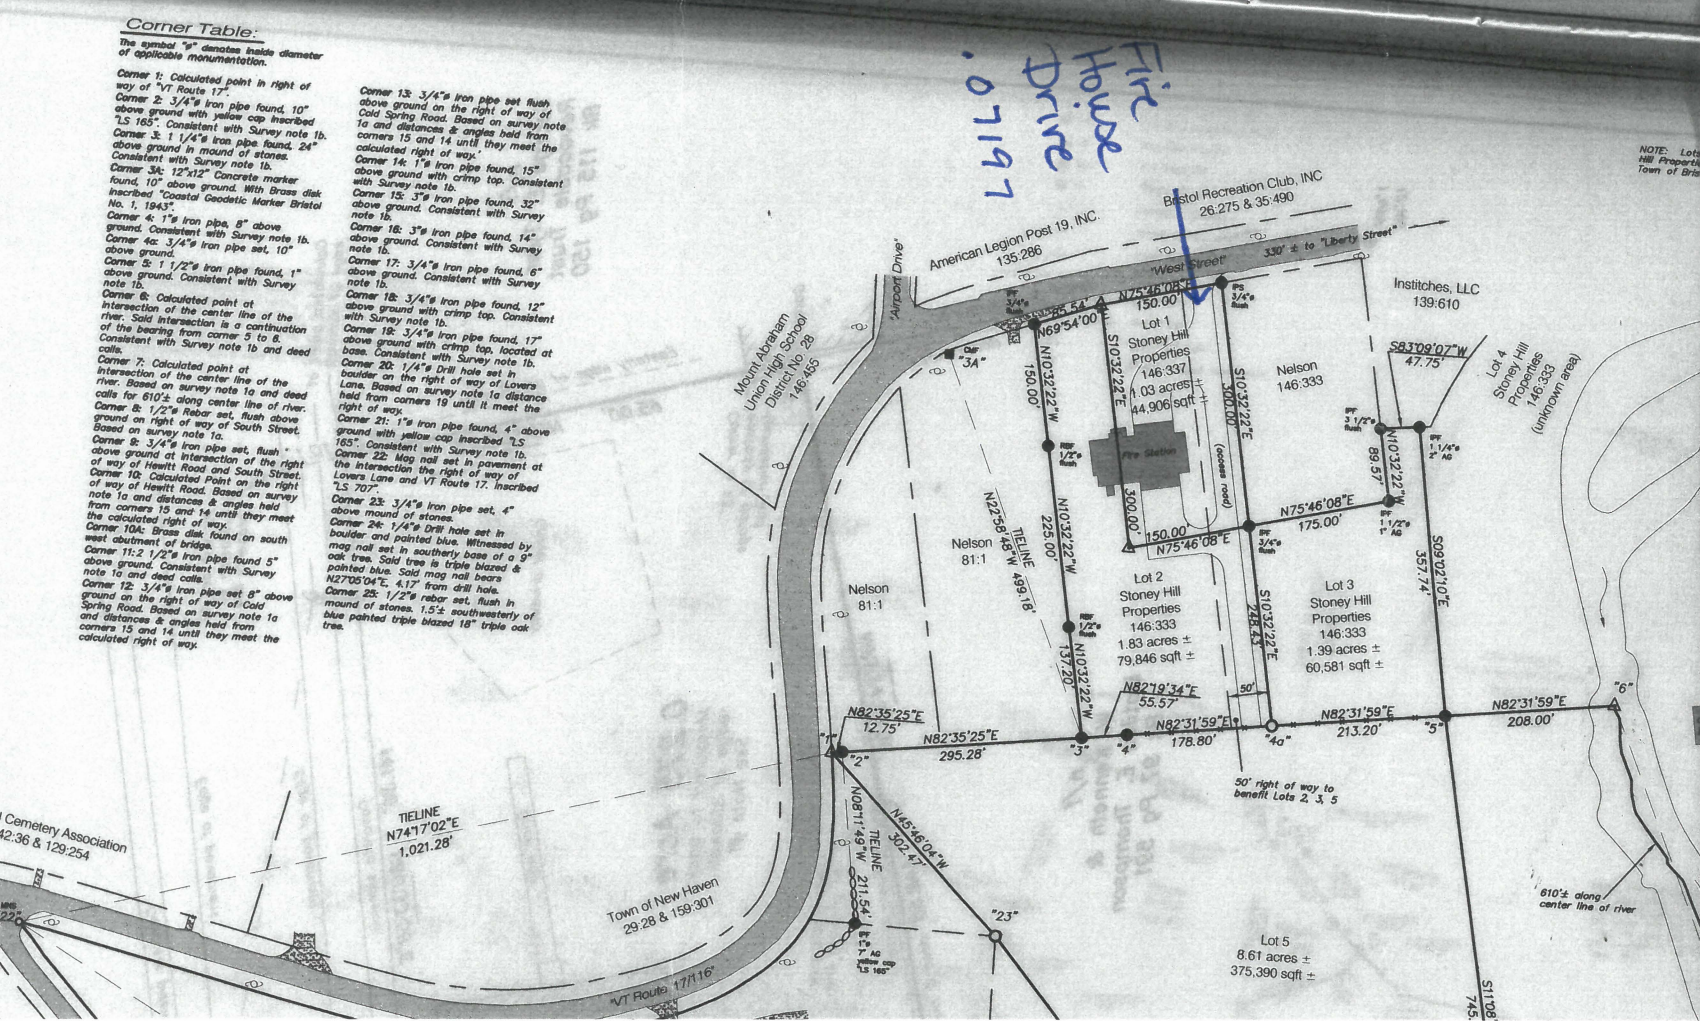 Corner Table:
The symbol "ø" denotes inside diameter
of applicable monumentation.
Corner 1: Calculated point in right of
way of "VT Route 17".
Corner 2: 3/4"ø Iron pipe found, 10"
above ground with yellow cap inscribed
"LS 165". Consistent with Survey note 1b.
Corner 3: 1 1/4"ø Iron pipe found, 24"
above ground in mound of stones.
Consistent with Survey note 1b.
Corner 3A: 12"x12" Concrete marker
found, 10" above ground. With Brass disk
inscribed "Coastal Geodetic Marker Bristol
No. 1, 1943".
Corner 4: 1"ø Iron pipe, 8" above
ground. Consistent with Survey note 1b.
Corner 4a: 3/4"ø Iron pipe set, 10"
above ground.
Corner 5: 1 1/2"ø Iron pipe found, 1"
above ground. Consistent with Survey
note 1b.
Corner 6: Calculated point at
intersection of the center line of the
river. Said intersection is a continuation
of the bearing from corner 5 to 6.
Consistent with Survey note 1b and deed
calls.
Corner 7: Calculated point at
intersection of the center line of the
river. Based on survey note 1a and deed
calls for 610'± along center line of river.
Corner 8: 1/2"ø Rebar set, flush above
ground on right of way of South Street.
Based on survey note 1a.
Corner 9: 3/4"ø Iron pipe set, flush
above ground at intersection of the right
of way of Hewitt Road and South Street.
Corner 10: Calculated Point on the right
of way of Hewitt Road. Based on survey
note 1a and distances & angles held
from corners 15 and 14 until they meet
the calculated right of way.
Corner 10A: Brass disk found on south
west abutment of bridge.
Corner 11: 2 1/2"ø Iron pipe found 5"
above ground. Consistent with Survey
note 1a and deed calls.
Corner 12: 3/4"ø Iron pipe set 8" above
ground on the right of way of Cold
Spring Road. Based on survey note 1a
and distances & angles held from
corners 15 and 14 until they meet the
calculated right of way.
Corner 13: 3/4"ø Iron pipe set flush
above ground on the right of way of
Cold Spring Road. Based on survey note
1a and distances & angles held from
corners 15 and 14 until they meet the
calculated right of way.
Corner 14: 1"ø Iron pipe found, 15"
above ground with crimp top. Consistent
with Survey note 1b.
Corner 15: 3"ø Iron pipe found, 32"
above ground. Consistent with Survey
note 1b.
Corner 16: 3"ø Iron pipe found, 14"
above ground. Consistent with Survey
note 1b.
Corner 17: 3/4"ø Iron pipe found, 6"
above ground. Consistent with Survey
note 1b.
Corner 18: 3/4"ø Iron pipe found, 12"
above ground with crimp top. Consistent
with Survey note 1b.
Corner 19: 3/4"ø Iron pipe found, 17"
above ground with crimp top, located at
base. Consistent with Survey note 1b.
Corner 20: 1/4"ø Drill hole set in
boulder on the right of way of Lovers
Lane. Based on survey note 1a distance
held from corners 19 until it meet the
right of way.
Corner 21: 1"ø Iron pipe found, 4" above
ground with yellow cap inscribed "LS
165". Consistent with Survey note 1b.
Corner 22: Mag nail set in pavement at
the intersection the right of way of
Lovers Lane and VT Route 17. Inscribed
"LS 707".
Corner 23: 3/4"ø Iron pipe set, 4"
above mound of stones.
Corner 24: 1/4"ø Drill hole set in
boulder and painted blue. Witnessed by
mag nail set in southerly base of a 9"
oak tree. Said tree is triple blazed &
painted blue. Said mag nail bears
N27°05'04"E, 4.17' from drill hole.
Corner 25: 1/2"ø rebar set, flush in
mound of stones. 1.5'± southwesterly of
blue painted triple blazed 18" triple oak
tree.
Fire
House
Drive
.07197
NOTE: Lots
Hill Properti
Town of Bris
Bristol Recreation Club, INC
26:275 & 35:490
American Legion Post 19, INC.
135:286
"West Street"
330' ± to "Liberty Street"
"Airport Drive"
Mount Abraham
Union High School
District No. 28
146:455
IPF
3/4"ø
flush
85.54'
N69°54'00"
N75°46'08"E
150.00'
IPS
3/4"ø
flush
CMF
"3A"
Institches, LLC
139:610
S83°09'07"W
47.75'
Lot 4
Stoney Hill
Properties
146:333
(unknown area)
Lot 1
Stoney Hill
Properties
146:337
1.03 acres ±
44,906 sqft ±
Nelson
146:333
N10°32'22"W
150.00'
S10°32'22"E
300.00'
S10°32'22"E
300.00'
Fire Station
(access road)
RBF
1/2"ø
flush
IPF
3 1/2"ø
flush
IPF
1 1/4"ø
2" AG
N10°32'22"W
89.57'
IPF
1 1/2"ø
1" AG
N75°46'08"E
175.00'
150.00'
N75°46'08"E
IPF
3/4"ø
flush
N10°32'22"W
225.00'
TIELINE
N22°58'48"W 499.18'
Nelson
81:1
Nelson
81:1
Lot 2
Stoney Hill
Properties
146:333
1.83 acres ±
79,846 sqft ±
Lot 3
Stoney Hill
Properties
146:333
1.39 acres ±
60,581 sqft ±
S10°32'22"E
248.43'
S09°02'10"E
357.74'
RBF
1/2"ø
flush
N10°32'22"W
137.20'
N82°19'34"E
55.57'
50'
N82°35'25"E
12.75'
"1"
"2"
N82°35'25"E
295.28'
"3"
"4"
N82°31'59"E
178.80'
"4a"
N82°31'59"E
213.20'
"5"
N82°31'59"E
208.00'
"6"
50' right of way to
benefit Lots 2, 3, 5
TIELINE
N74°17'02"E
1,021.28'
Cemetery Association
42:36 & 129:254
MNS
22"
Town of New Haven
29:28 & 159:301
"VT Route 17/116"
N08°11'49"W 211.54'
TIELINE
N45°46'04"W
302.47'
IPF
1"ø
7" AG
yellow cap
"LS 165"
"23"
Lot 5
8.61 acres ±
375,390 sqft ±
610'± along
center line of river
S11°08'
745.